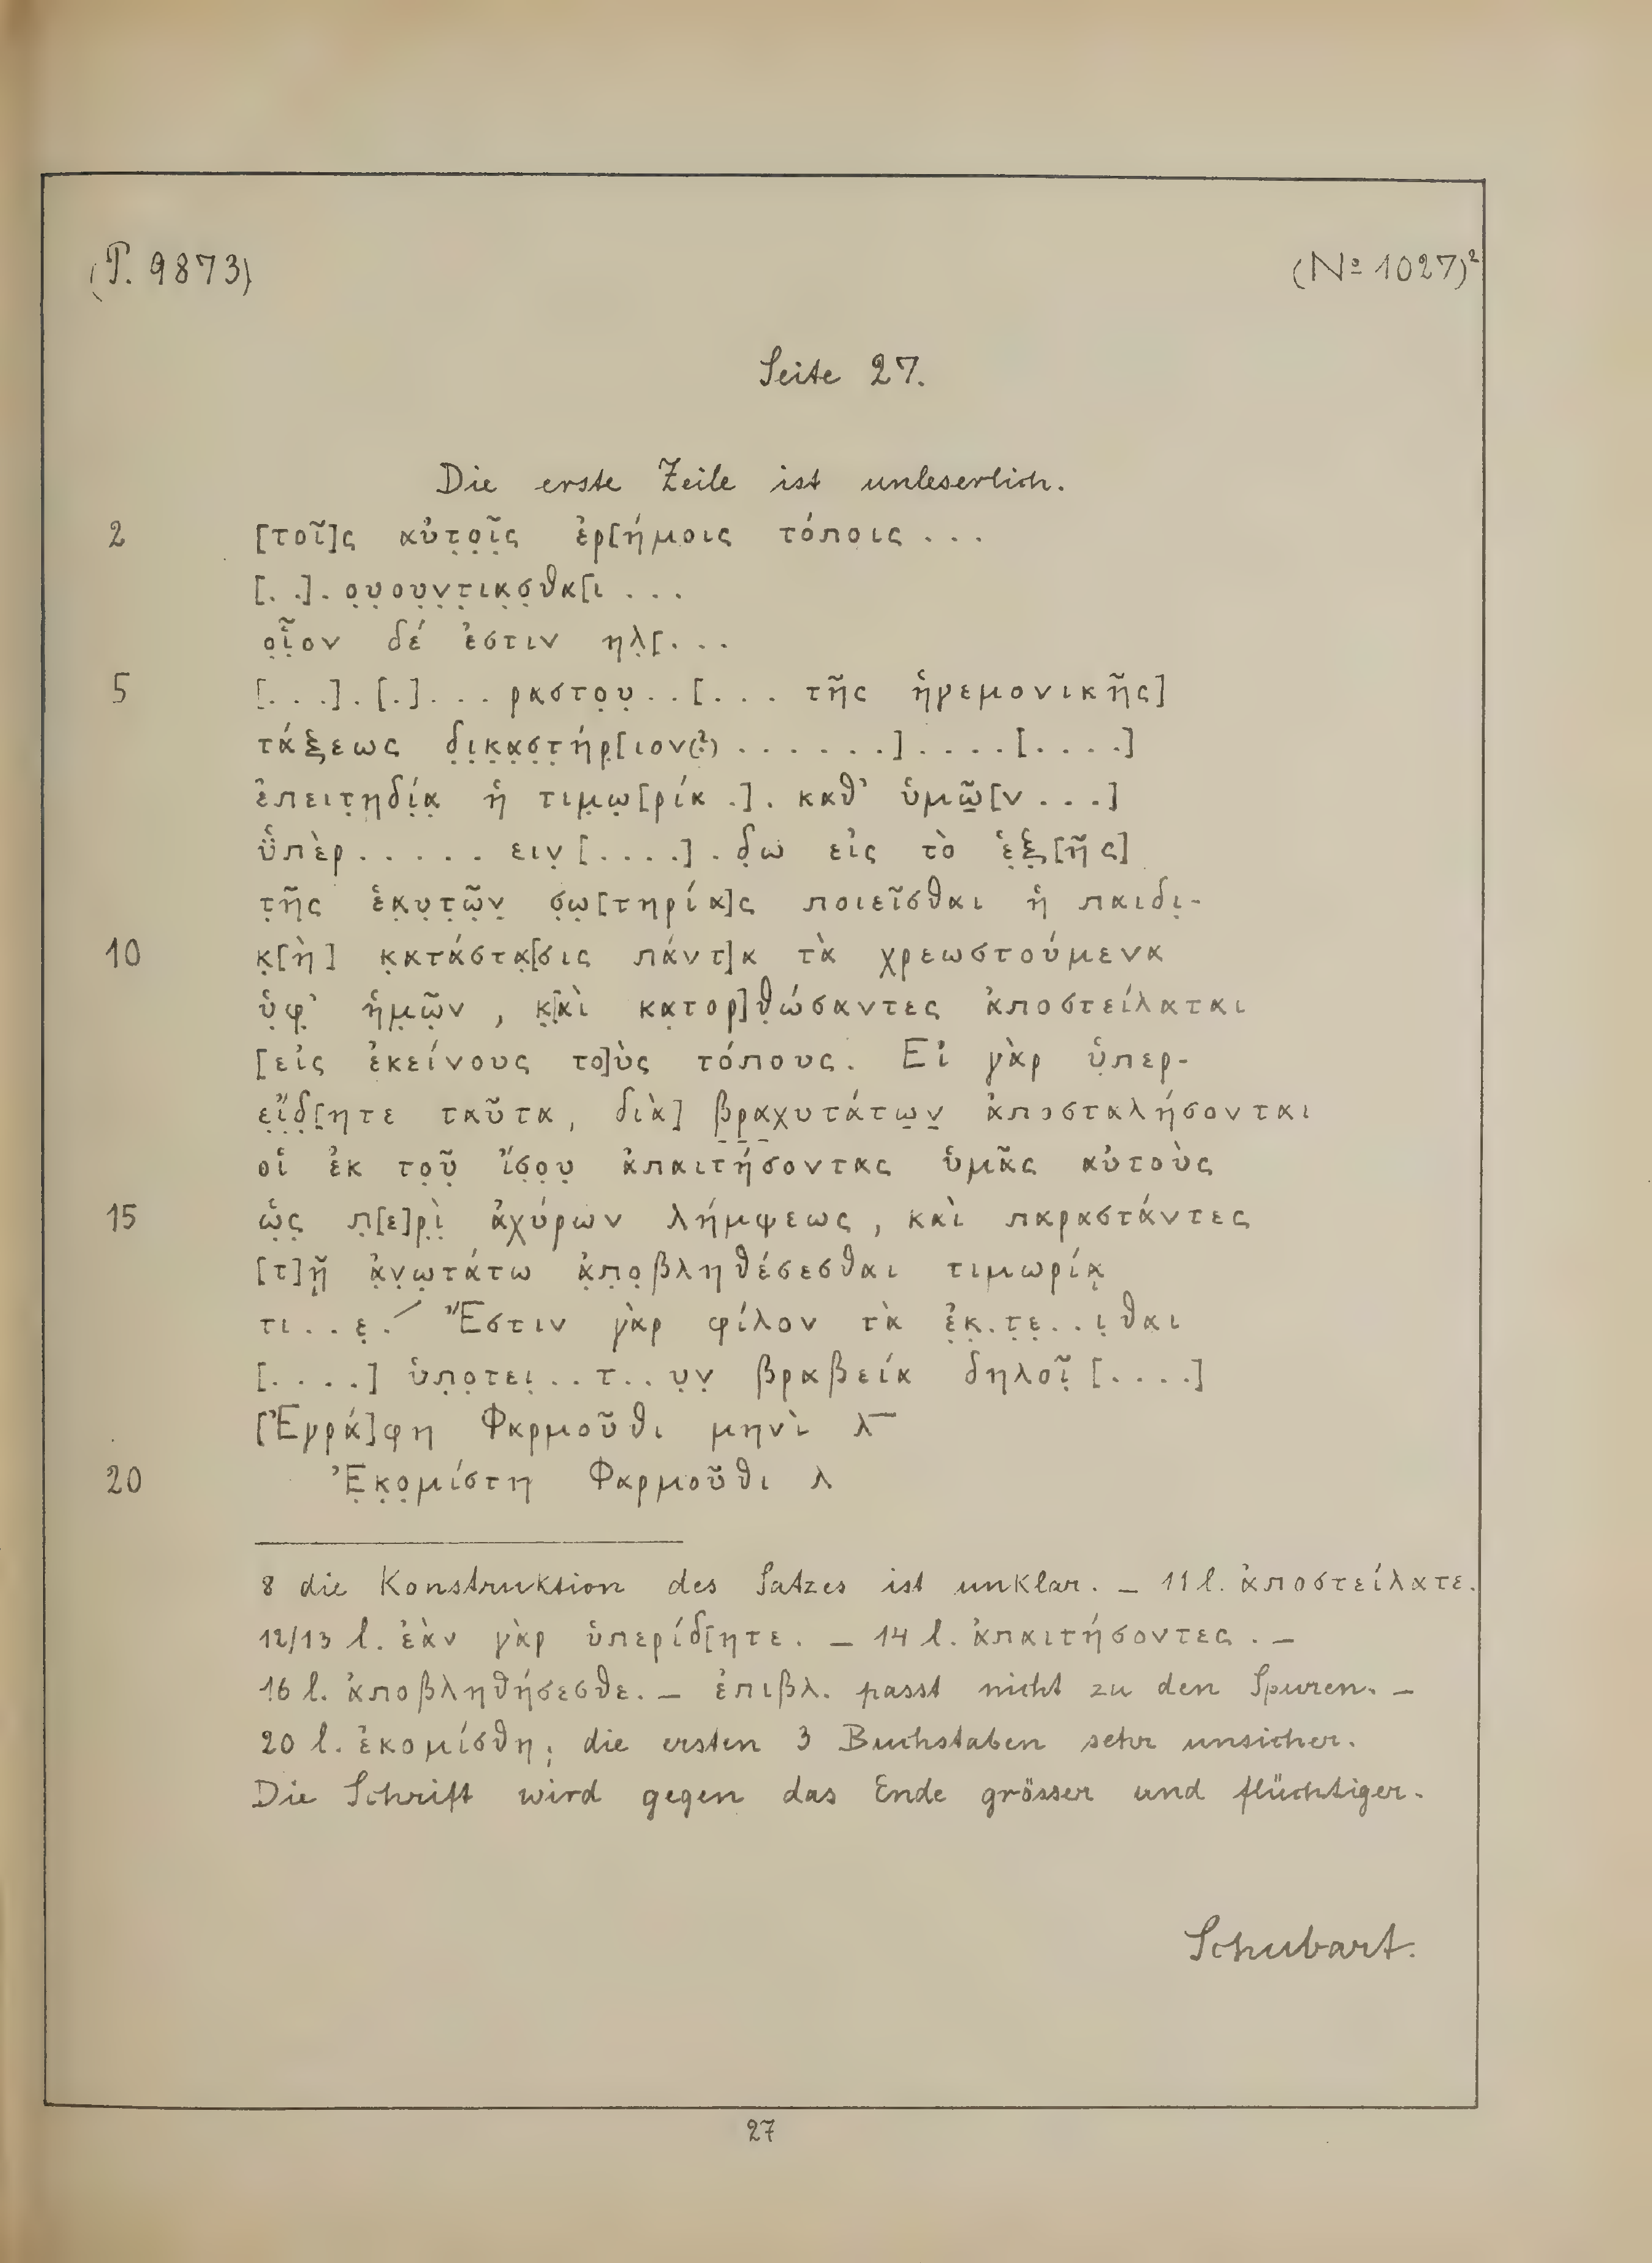 (P. 9873)
(№ 1027)²
Seite 27.
Die erste Zeile ist unleserlich.
2 [τοῖ]ς αὐτ̣ο̣ῖ̣ς ἐρ[ήμοις τόποις . . .
[. .]. ο̣υ̣ο̣υ̣ν̣τ̣ικ̣ο̣σ̣θα[ι . . .
ο̣ἷ̣ον δέ ἐστιν ηλ̣[. . .
5 [. . .] . [.] . . . ραστο̣υ̣ . . [. . . τῆς ἡγεμονικῆς]
τάξεως δ̣ι̣κ̣α̣σ̣τ̣ήρ̣[ιον(?) . . . . . . .] . . . . [. . . .]
ἐπειτ̣ηδί̣α̣ ἡ τιμ̣ω̣[ρία .] . καθ' ὑμῶ̣[ν . . .]
ὕ̈πὲρ . . . . . ειν̣ [. . . .] . δ̣ω εἰς τὸ ἑ̣ξ̣[ῆς]
τ̣ῆς ἑα̣υ̣τ̣ῶ̣ν̣ σ̣ω̣[τηρία]ς ποιεῖσθαι ἡ παιδι̣-
10 κ̣[ὴ] κ̣ατάστα̣[σις πάντ]α τὰ χρεωστούμενα
ὑ̣φ̣' ἡμ̣ῶ̣ν, κ̣[α]ὶ κα̣τορ]θ̣ώσαντες ἀποστείλαται
[εἰς ἐκείνους το]ὺς τόπους. Εἰ γὰρ ὑ̣περ-
ε̣ἴ̣δ̣[ητε ταῦτα, διὰ] β̣ρ̣α̣χυτάτω̣ν̣ ἀποσταλήσονται
οἱ ἐκ το̣ῦ̣ ἴσ̣ο̣υ̣ ἀπαιτή̣σοντας ὑμᾶς αὐτοὺς
15 ὡ̣ς̣ π̣[ε]ρ̣ὶ̣ ἀχύρων λήμψεως, καὶ παραστάντες
[τ]ῇ ἀ̣ν̣ω̣τάτω ἀ̣π̣ο̣βληθέσεσθαι τιμωρίᾳ
τι . . ε̣ . ⸍ Ἔστιν γὰρ φίλον τὰ ἐ̣κ̣ . τ̣ε̣ . . ι̣θαι
[. . . .] ὑπ̣ο̣τει̣ . . τ . . υ̣ν̣ βραβεία δηλοῖ̣ [. . . .]
[Ἐγρά]φη Φαρμοῦθι μηνὶ λ̅
20 Ἐ̣κ̣ο̣μίστη Φαρμοῦθι λ
8 die Konstruktion des Satzes ist unklar. — 11 l. ἀποστείλατε.
12/13 l. ἐὰν γὰρ ὑπερίδ[ητε. — 14 l. ἀπαιτήσοντες. —
16 l. ἀποβληθήσεσθε. — ἐπιβλ. passt nicht zu den Spuren. —
20 l. ἐκομίσθη; die ersten 3 Buchstaben sehr unsicher.
Die Schrift wird gegen das Ende grösser und flüchtiger.
Schubart.
27